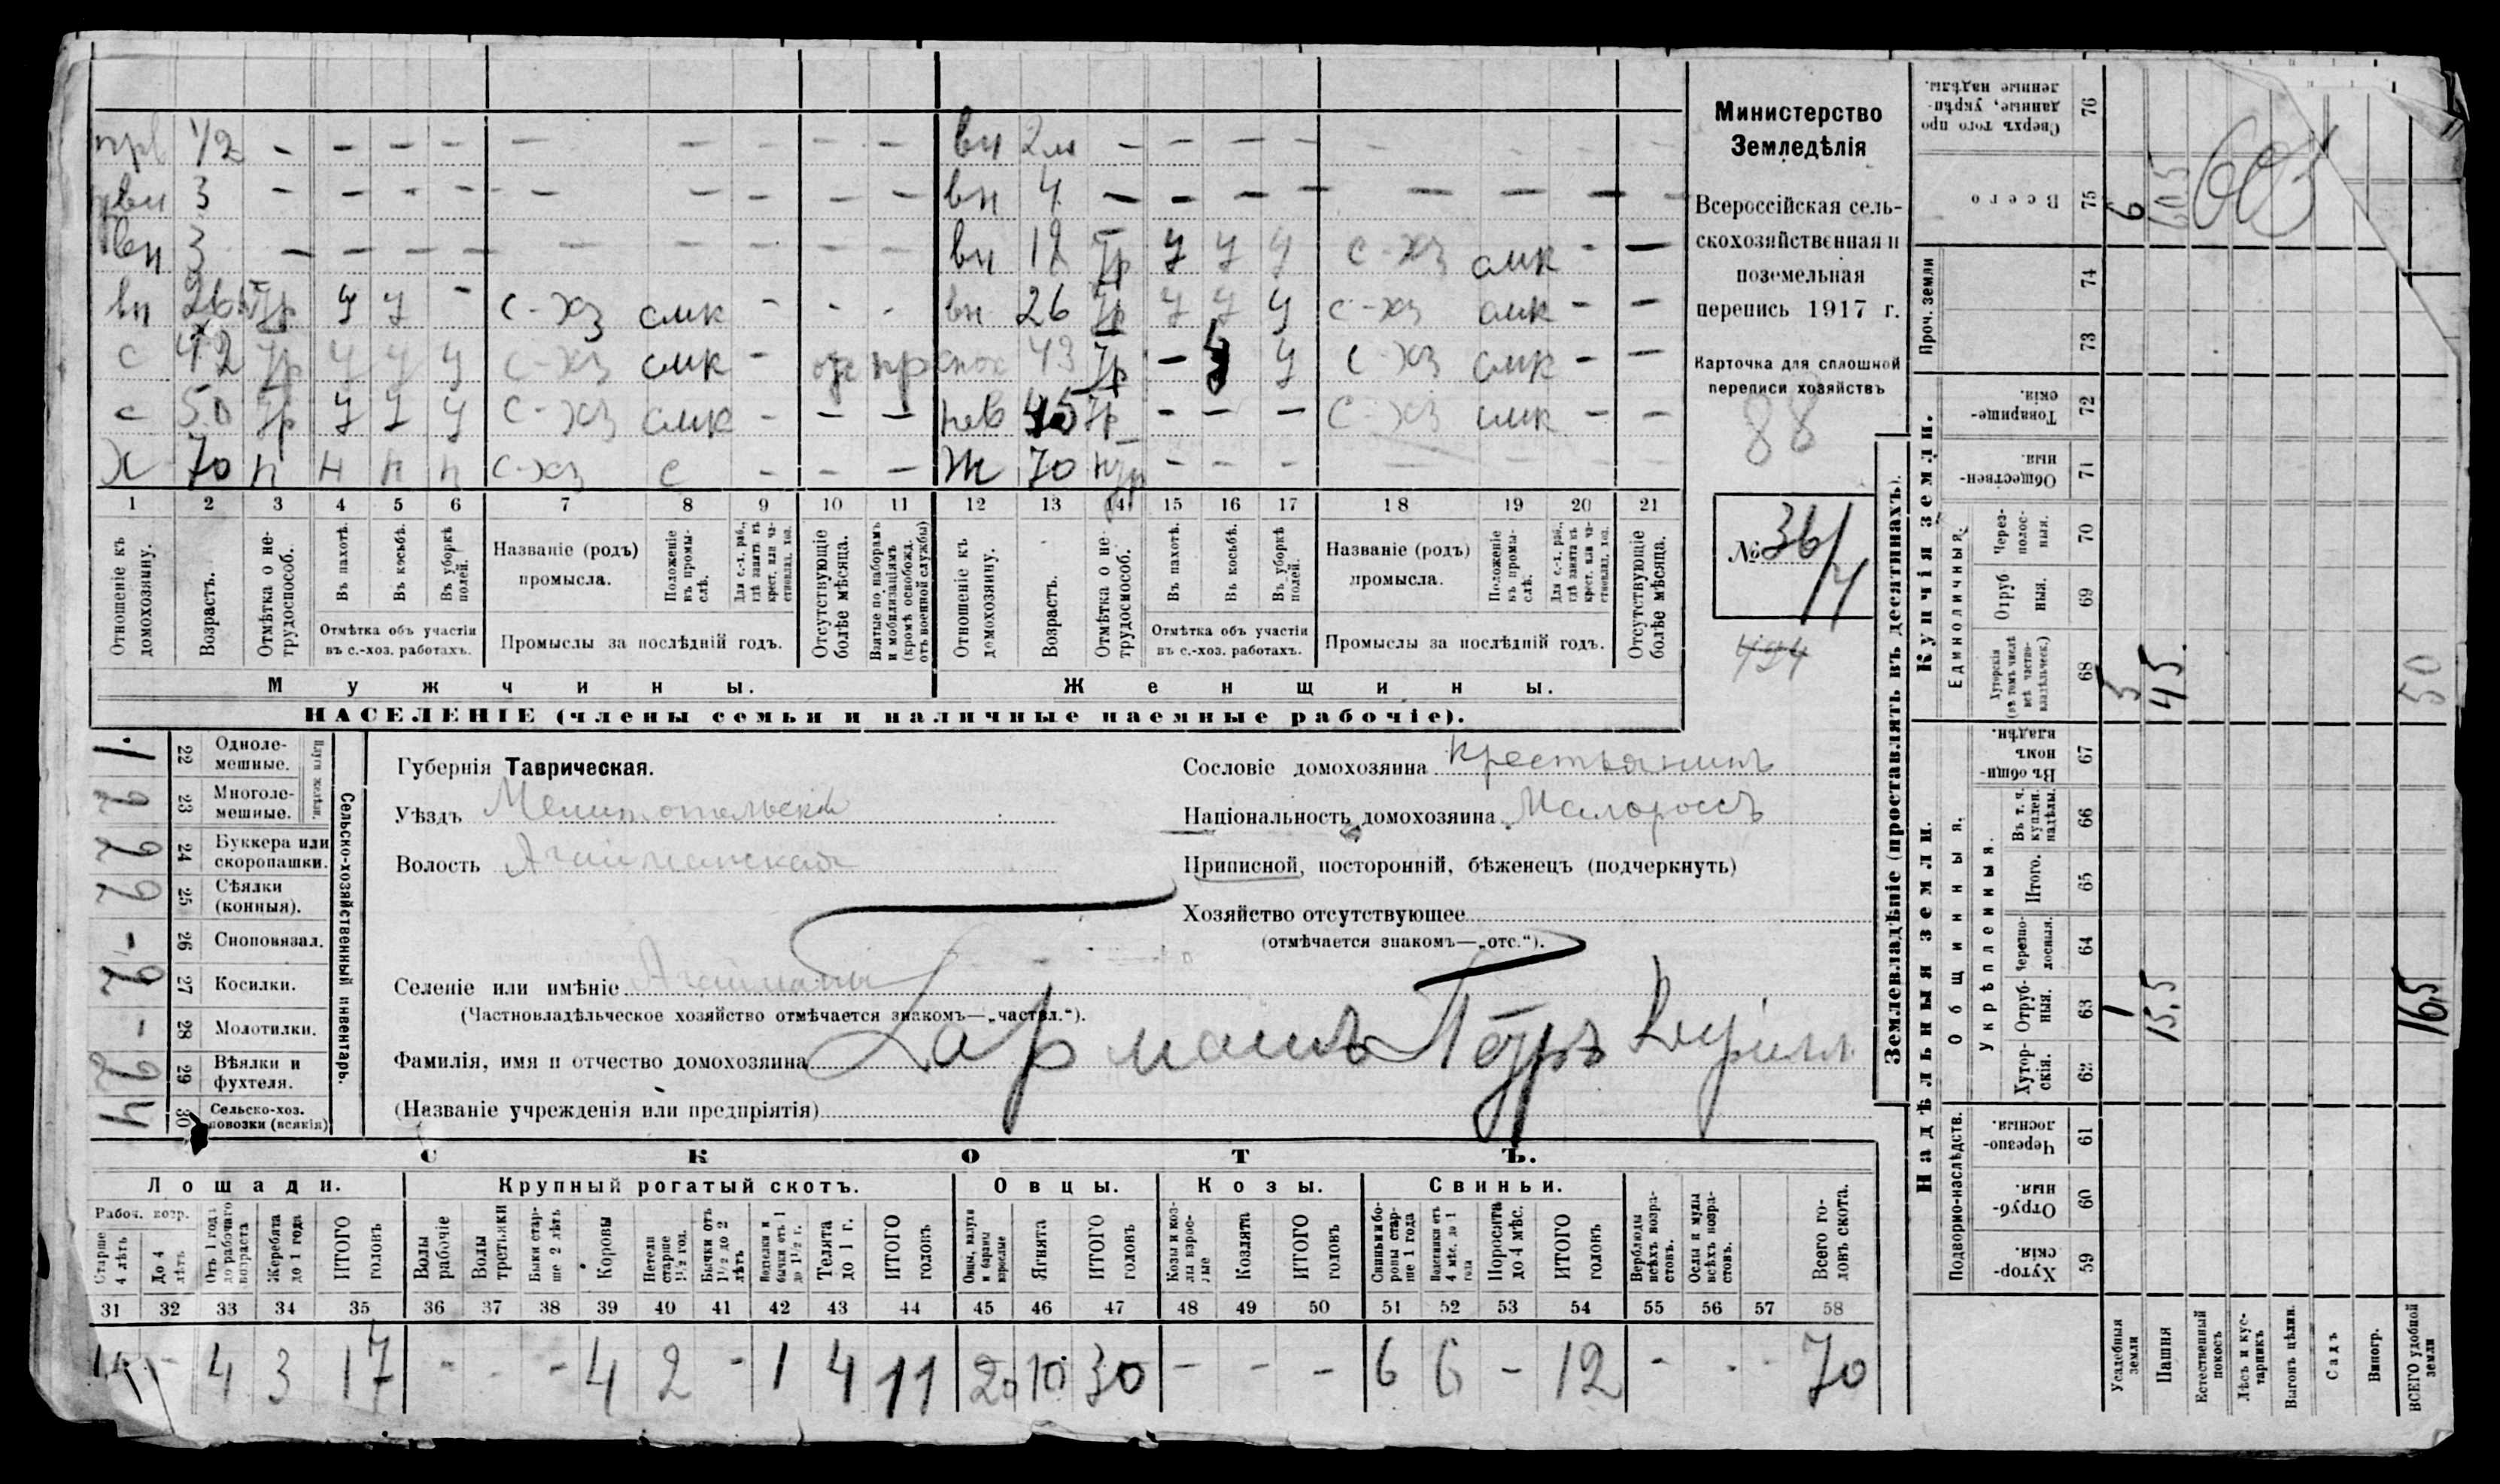 прв 1/2 - - - - - - - - - вн 2м - - - - - - - -
првн 3 - - - - - - - - - вн 4 - - - - - - - -
вн 3 - - - - - - - - - вн 12 Тр у у у с-хз смк - -
вн 26 Тр у у - с-хз смк - - - вн 26 Тр у у у с-хз смк - -
с 42 Тр у у у с-хз смк - пр 43 Тр - у у с-хз смк - -
с 50 Тр у у у с-хз смк - - - нев 45 Тр - - - с-хз смк - -
х 70 н н н н с-хз с - - - ж 70 - - - - - - -
1 2 3 4 5 6 7 8 9 10 11 12 13 14 15 16 17 18 19 20 21
Отношеніе къ домохозяину.
Возрастъ.
Отмѣтка о нетрудоспособ.
Въ пахотѣ.
Въ косьбѣ.
Въ уборкѣ полей.
Отмѣтка объ участіи
въ с.-хоз. работахъ.
Названіе (родъ)
промысла.
Положеніе въ промыслѣ.
Для с.-х. раб., гдѣ занятъ въ крест. или частновлад. хоз.
Промыслы за послѣдній годъ.
Отсутствующіе болѣе мѣсяца.
Взятые по наборамъ и мобилизаціямъ (кромѣ освобожд. отъ военной службы)
Отношеніе къ домохозяину.
Возрастъ.
Отмѣтка о нетрудоспособ.
Въ пахотѣ.
Въ косьбѣ.
Въ уборкѣ полей.
Отмѣтка объ участіи
въ с.-хоз. работахъ.
Названіе (родъ)
промысла.
Положеніе въ промыслѣ.
Для с.-х. раб., гдѣ занята въ крест. или частновлад. хоз.
Промыслы за послѣдній годъ.
Отсутствующіе болѣе мѣсяца.
Мужчины. Женщины.
НАСЕЛЕНІЕ (члены семьи и наличные наемные рабочіе).
Министерство
Земледѣлія
Всероссійская сель-
скохозяйственная и
поземельная
перепись 1917 г.
Карточка для сплошной
переписи хозяйствъ
88
№ 36/4
494
Сельско-хозяйственный инвентарь.
Плуги желѣзн.
1. 22 Одноле-
мешные.
2 23 Многоле-
мешные.
2 24 Буккера или
скоропашки.
2 25 Сѣялки
(конныя).
- 26 Сноповязал.
2 27 Косилки.
- 28 Молотилки.
2 29 Вѣялки и
фухтеля.
4 30 Сельско-хоз.
повозки (всякія)
Губернія Таврическая.
Уѣздъ Мелитопольскій
Волость Агайманская
Селеніе или имѣніе Агайманы
(Частновладѣльческое хозяйство отмѣчается знакомъ—„частвл.“).
Фамилія, имя и отчество домохозяина Гармашъ Петръ Кирилл
(Названіе учрежденія или предпріятія)
Сословіе домохозяина крестьянинъ
Національность домохозяина Малороссъ
Приписной, посторонній, бѣженецъ (подчеркнуть)
Хозяйство отсутствующее
(отмѣчается знакомъ—„отс.“).
СКОТЪ.
Лошади. Крупный рогатый скотъ. Овцы. Козы. Свиньи.
Рабоч. возр.
Старше 4 лѣтъ
До 4 лѣтъ
Отъ 1 года до рабочаго возраста
Жеребята до 1 года
ИТОГО головъ
Волы рабочіе
Волы третьяки
Быки старше 2 лѣтъ
Коровы
Нетели старше 1½ год.
Бычки отъ 1½ до 2 лѣтъ
Нетелки и бычки отъ 1 до 1½ г.
Телята до 1 г.
ИТОГО головъ
Овцы, валухи и бараны взрослые
Ягнята
ИТОГО головъ
Козы и козлы взрослые
Козлята
ИТОГО головъ
Свиньи и боровы старше 1 года
Подсвинки отъ 4 мѣс. до 1 года
Поросята до 4 мѣс.
ИТОГО головъ
Верблюды всѣхъ возрастовъ.
Ослы и мулы всѣхъ возрастовъ.
Всего головъ скота.
31 32 33 34 35 36 37 38 39 40 41 42 43 44 45 46 47 48 49 50 51 52 53 54 55 56 57 58
- 4 3 17 - - - 4 2 - 1 4 11 20 10 30 - - - 6 6 - 12 - - - 70
Землевладѣніе (проставлять въ десятинахъ).
Купчія земли.
Надѣльныя земли.
Сверхъ того проданные, укрѣпленные надѣлы. 76
Всего 75 6 60.5
603
Проч. земли 74
73
Товарищескія. 72
Общественныя. 71
Единоличныя.
Черезполосныя. 70
Отрубныя. 69
Хуторскія (въ томъ числѣ всѣ частновладѣльческ.) 68 5 45. 50
Общинныя.
Въ общинномъ владѣн. 67
Укрѣпленныя.
Въ т. ч. куплен. надѣлы. 66
Итого. 65
Черезполосныя. 64
Отрубныя. 63 1 15,5 16,5
Хуторскія. 62
Подворно-наслѣдств.
Черезполосныя. 61
Отрубныя. 60
Хуторскія. 59
Усадебныя земли
Пашня
Естественный покосъ
Лѣсъ и кустарникъ
Выгонъ цѣлин.
Садъ
Виногр.
ВСЕГО удобной земли